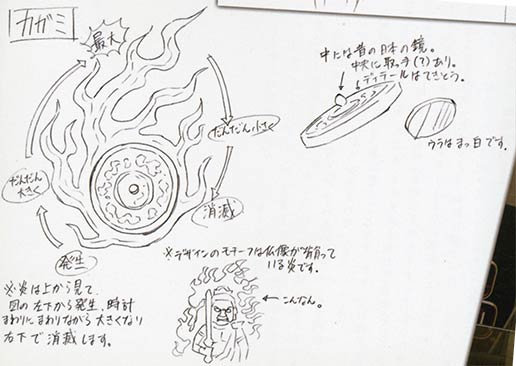 カガミ
最大
だんだん小さく
消滅
だんだん
大きく
発生
中には昔の日本の鏡。
中央に取っ手(?)あり。
ディテールはてきとう。
ウラはまっ白です。
※炎は上から見て、
図の左下から発生、時計
まわりにまわりながら大きくなり
右下で消滅します。
※デザインのモチーフは仏像が背負って
いる炎です。
←こんなん。